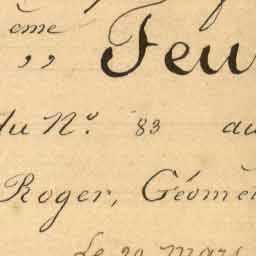 ème
,, Feu
du N.º 83 au
Roger, Géomè
Le 29 mars